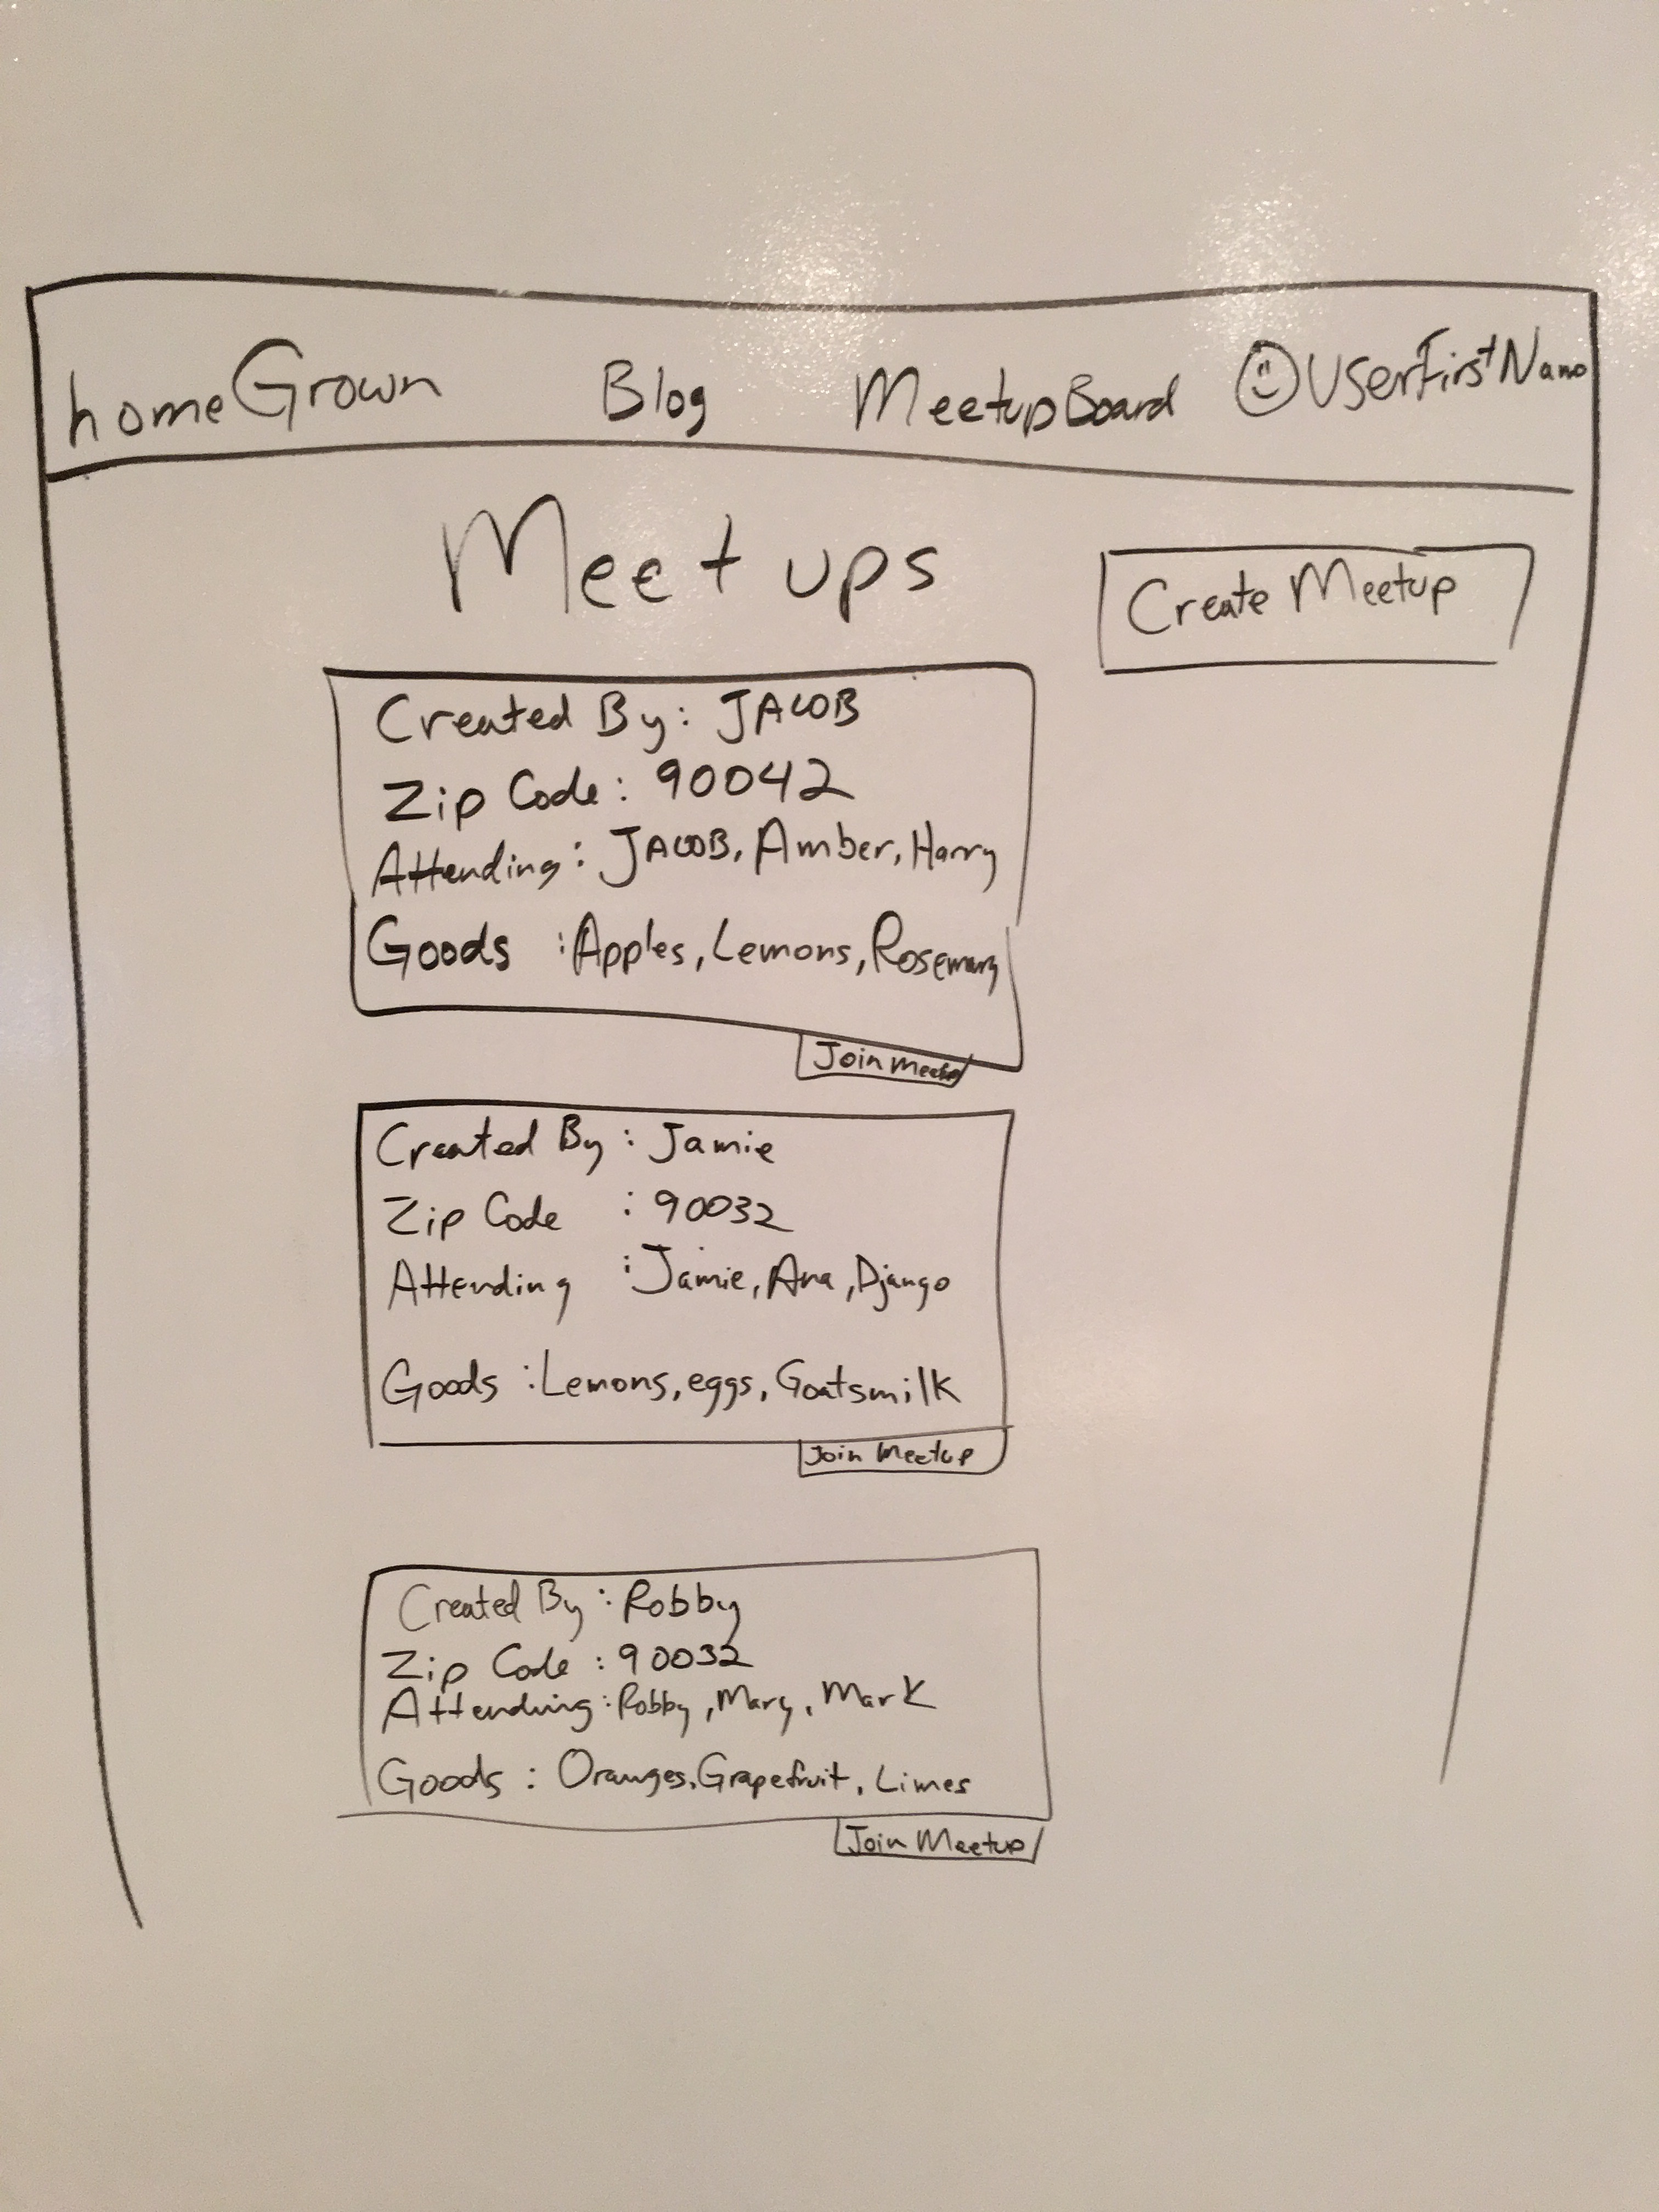 homeGrown Blog MeetupBoard UserFirstName
Meetups
Create Meetup
Created By: JACOB
Zip Code: 90042
Attending: JACOB, Amber, Harry
Goods : Apples, Lemons, Rosemary
Join Meetup
Created By : Jamie
Zip Code : 90032
Attending : Jamie, Ana, Django
Goods : Lemons, eggs, Goatsmilk
Join Meetup
Created By : Robby
Zip Code : 90032
Attending : Robby, Mary, Mark
Goods : Oranges, Grapefruit, Limes
Join Meetup